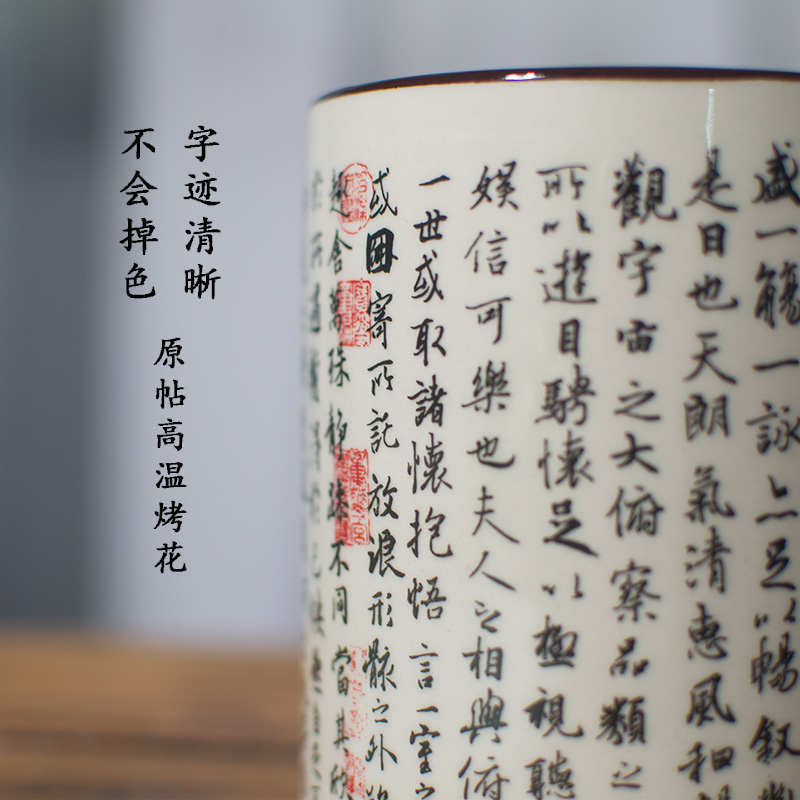 字迹清晰
不会掉色
原帖高温烤花
盛一觴一詠亦足以暢叙幽
是日也天朗氣清惠風和
觀宇宙之大俯察品類之
所以遊目騁懷足以極視聽
娛信可樂也夫人之相與俯
一世或取諸懷抱悟言一室之
或因寄所託放浪形骸之外
趣舍萬殊靜躁不同當其欣